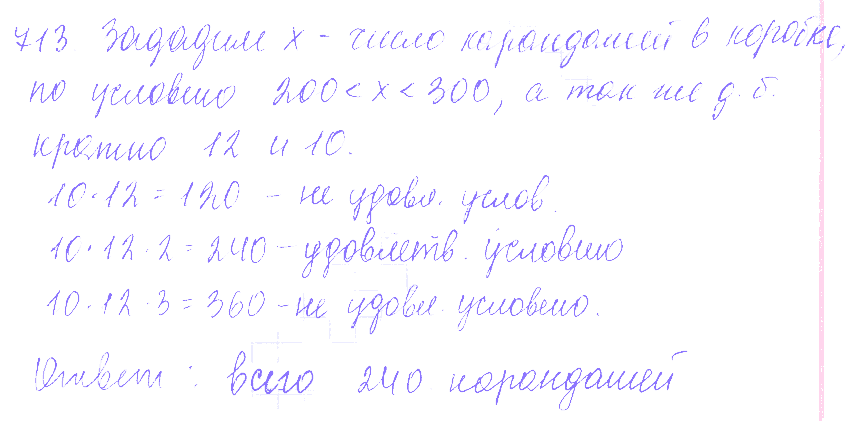 713 Зададим x - число карандашей в коробке,
по условию 200 < x < 300, а так же д.б.
кратно 12 и 10.
10·12 = 120 - не удовл. услов.
10·12·2 = 240 - удовлетв. условию
10·12·3 = 360 - не удовл. условию.
Ответ: всего 240 карандашей